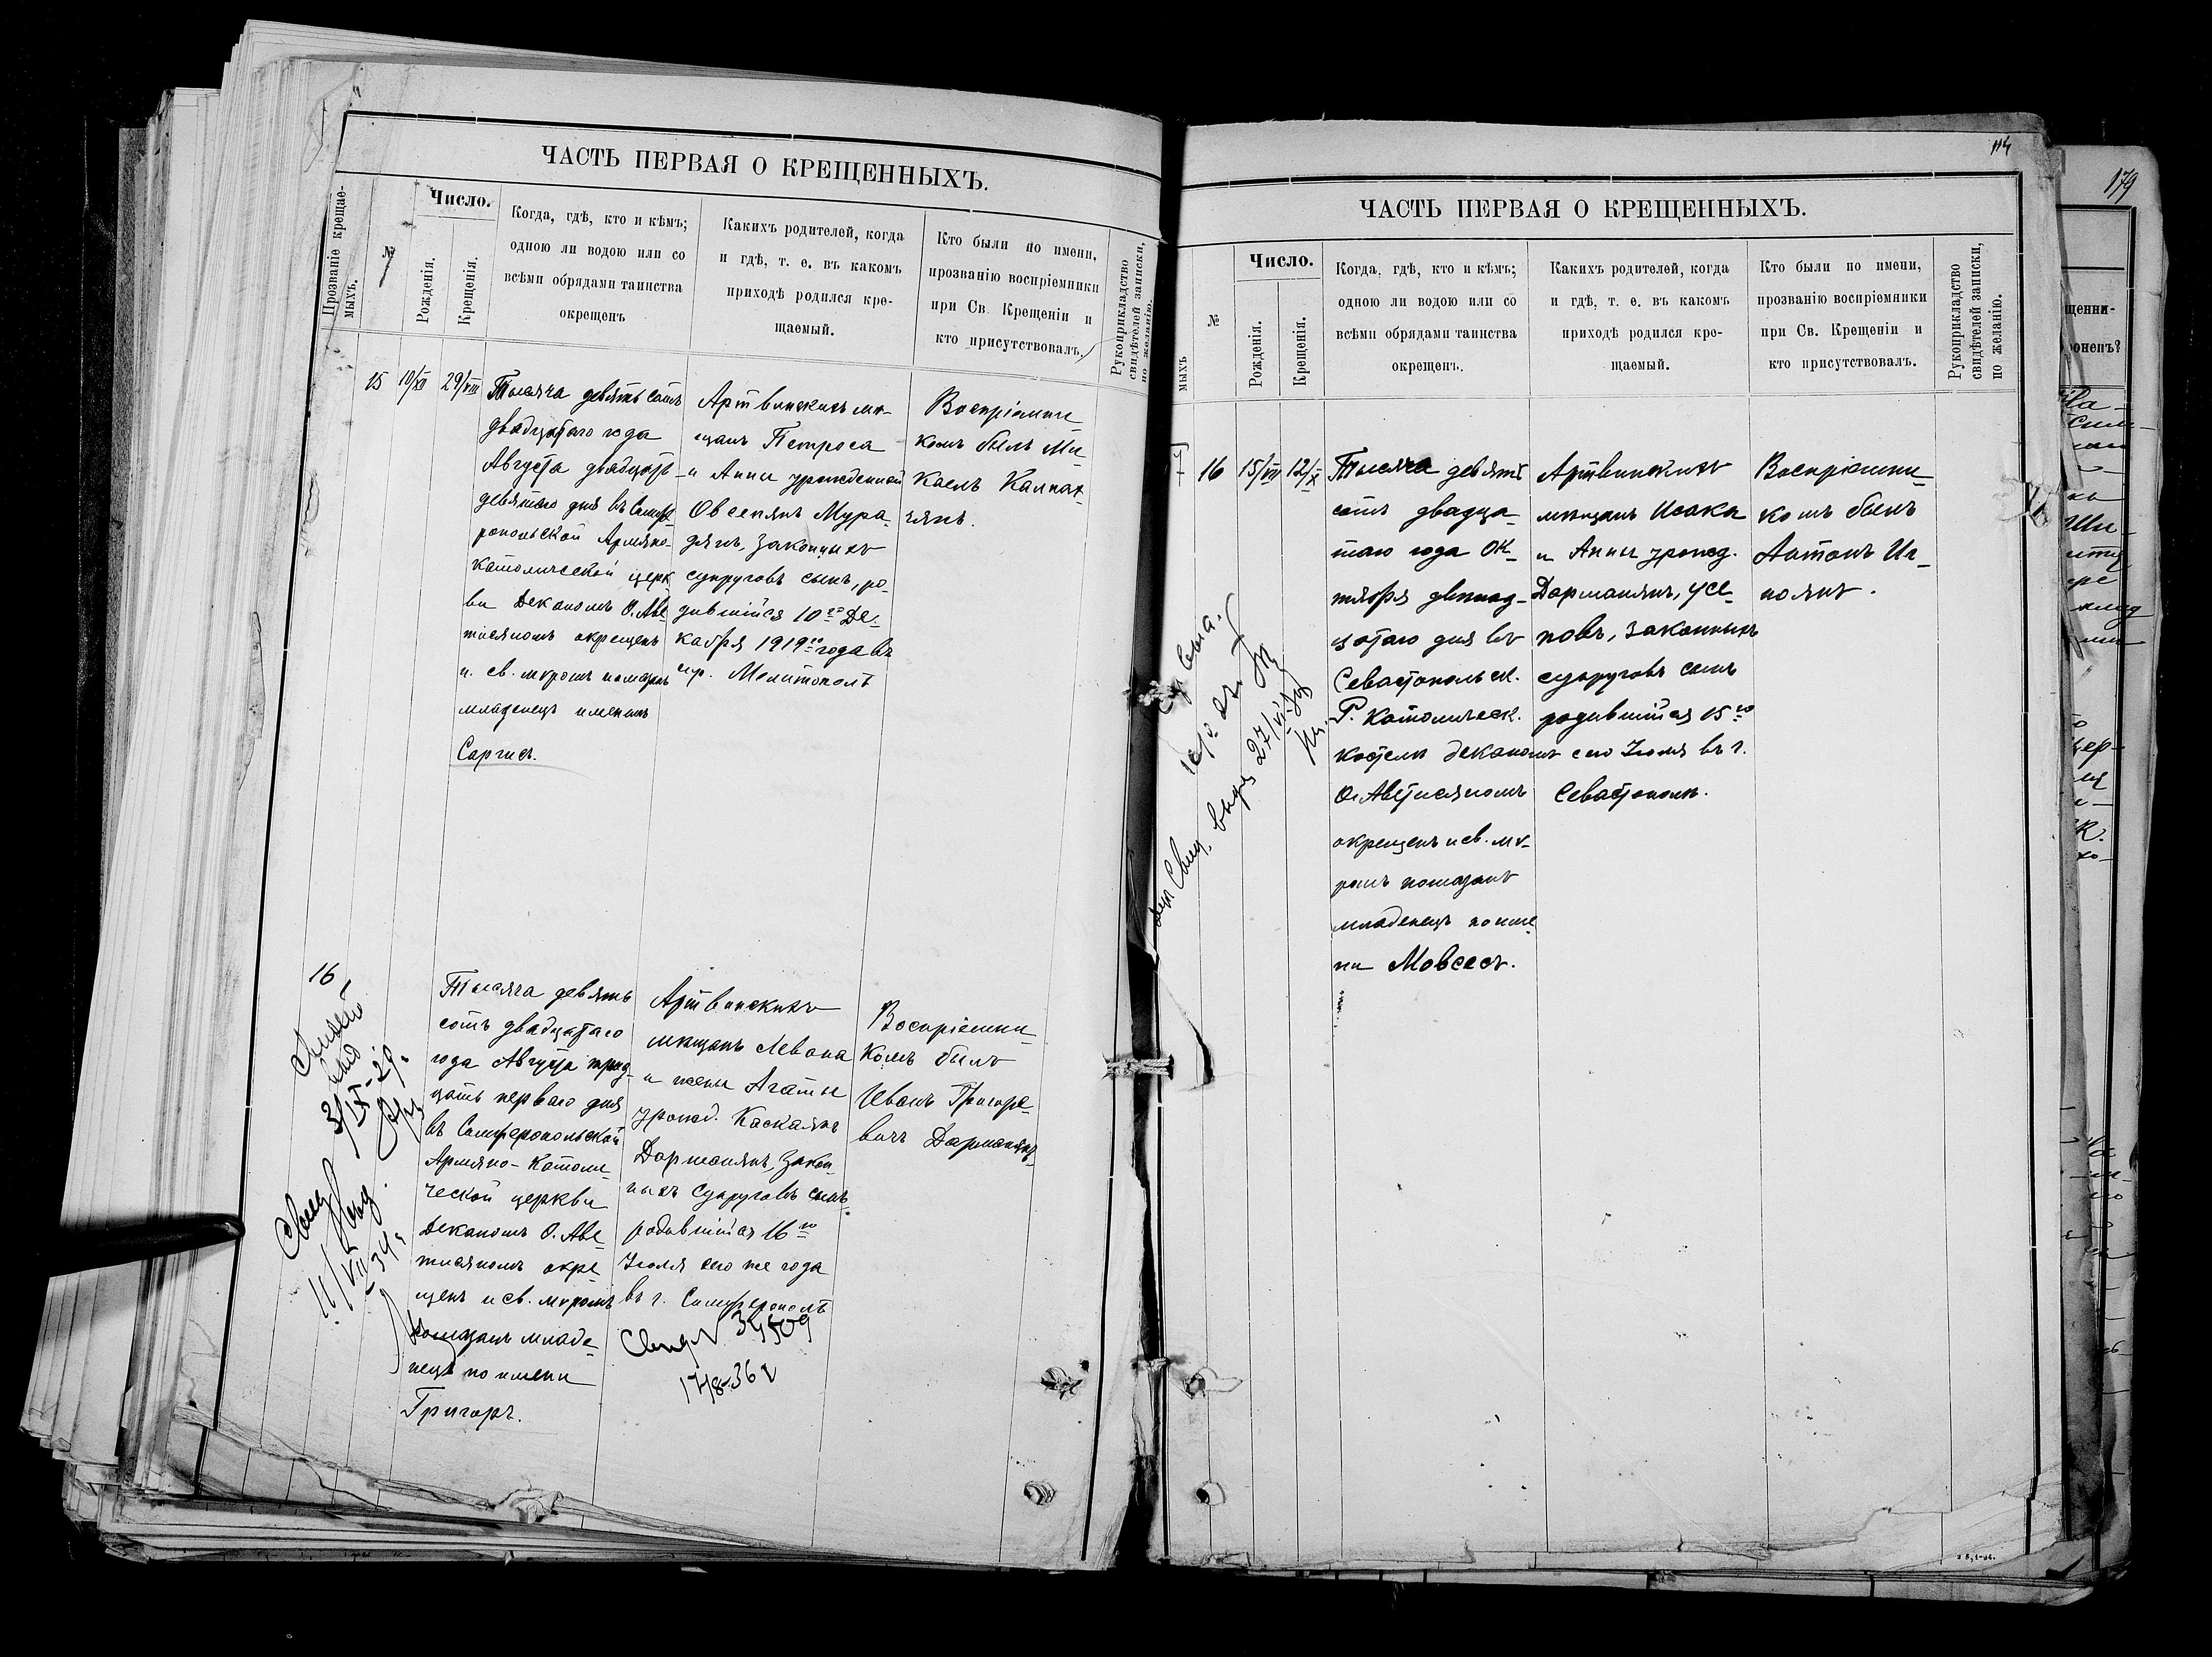 ЧАСТЬ ПЕРВАЯ О КРЕЩЕННЫХЪ.
Прозваніе крещае-
мыхъ.
№
Число.
Рожденія.
Крещенія.
Когда, гдѣ, кто и кѣмъ;
одною ли водою или со
всѣми обрядами таинства
окрещенъ
Какихъ родителей, когда
и гдѣ, т. е. въ какомъ
приходѣ родился кре-
щаемый.
Кто были по имени,
прозванію воспріемники
при Св. Крещеніи и
кто присутствовалъ.
Рукоприкладство
свидѣтелей записки,
по желанію.
15
10/XII
29/VIII
Тысяча девятьсотъ
двадцатаго года
Августа двадцать
девятаго дня въ Симфе-
ропольской Армяно-
католической церк
ви Деканомъ О. Аве
тисяномъ окрещенъ
и св. мѵромъ помазанъ
младенецъ именемъ
Саргисъ.
Артвинскихъ мѣ-
щанъ Петроса
и Анны урожденной
Овсепянъ Мура-
дянъ, законныхъ
супруговъ сынъ, ро-
дившійся 10го Де-
кабря 1919го года въ
гор. Мелитополѣ
Воспріемни-
комъ былъ Ми-
каелъ Калпак-
чянъ.
16
3/IX-29.
Свид
11/VII 34.
Тысяча девять
сотъ двадцатаго
года Августа трид-
цать перваго дня
въ Симферопольской
Армяно-Католи
ческой церкви
Деканомъ О. Аве-
тисяномъ окре-
щенъ и св. мѵромъ
помазанъ младе-
нецъ по имени
Григоръ.
Артвинскихъ
мѣщанъ Левона
и жены Агаты
урожд. Каскаянъ
Дарманянъ, закон-
ныхъ супруговъ сынъ
родившійся 16го
Іюля сего же года
въ г. Симферополѣ
Воспріемни-
комъ былъ
Иванъ Григоре-
вичъ Дарманянъ.
114
ЧАСТЬ ПЕРВАЯ О КРЕЩЕННЫХЪ.
мыхъ
№
Число.
Рожденія.
Крещенія.
Когда, гдѣ, кто и кѣмъ;
одною ли водою или со
всѣми обрядами таинства
окрещенъ.
Какихъ родителей, когда
и гдѣ, т. е. въ какомъ
приходѣ родился кре-
щаемый.
Кто были по имени,
прозванію воспріемники
при Св. Крещеніи и
кто присутствовалъ.
Рукоприкладство
свидѣтелей записки,
по желанію.
16
15/VII
12/X
Тысяча девять
сотъ двадца-
таго года Ок-
тября двѣнад-
цатаго дня въ
Севастопольск.
Р. Католическ.
костелѣ деканомъ
О. Аветисяномъ
окрещенъ и св. мѵ-
ромъ помазанъ
младенецъ по име
ни Мовсесъ.
Артвинскихъ
мѣщанъ Исака
и Анны урожд.
Дарманянъ, Усе-
повъ, законныхъ
супруговъ сынъ
родившійся 15го
сего Іюля въ г.
Севастополѣ.
Воспріемни-
комъ былъ
Антонъ Иг-
нолянъ.
179